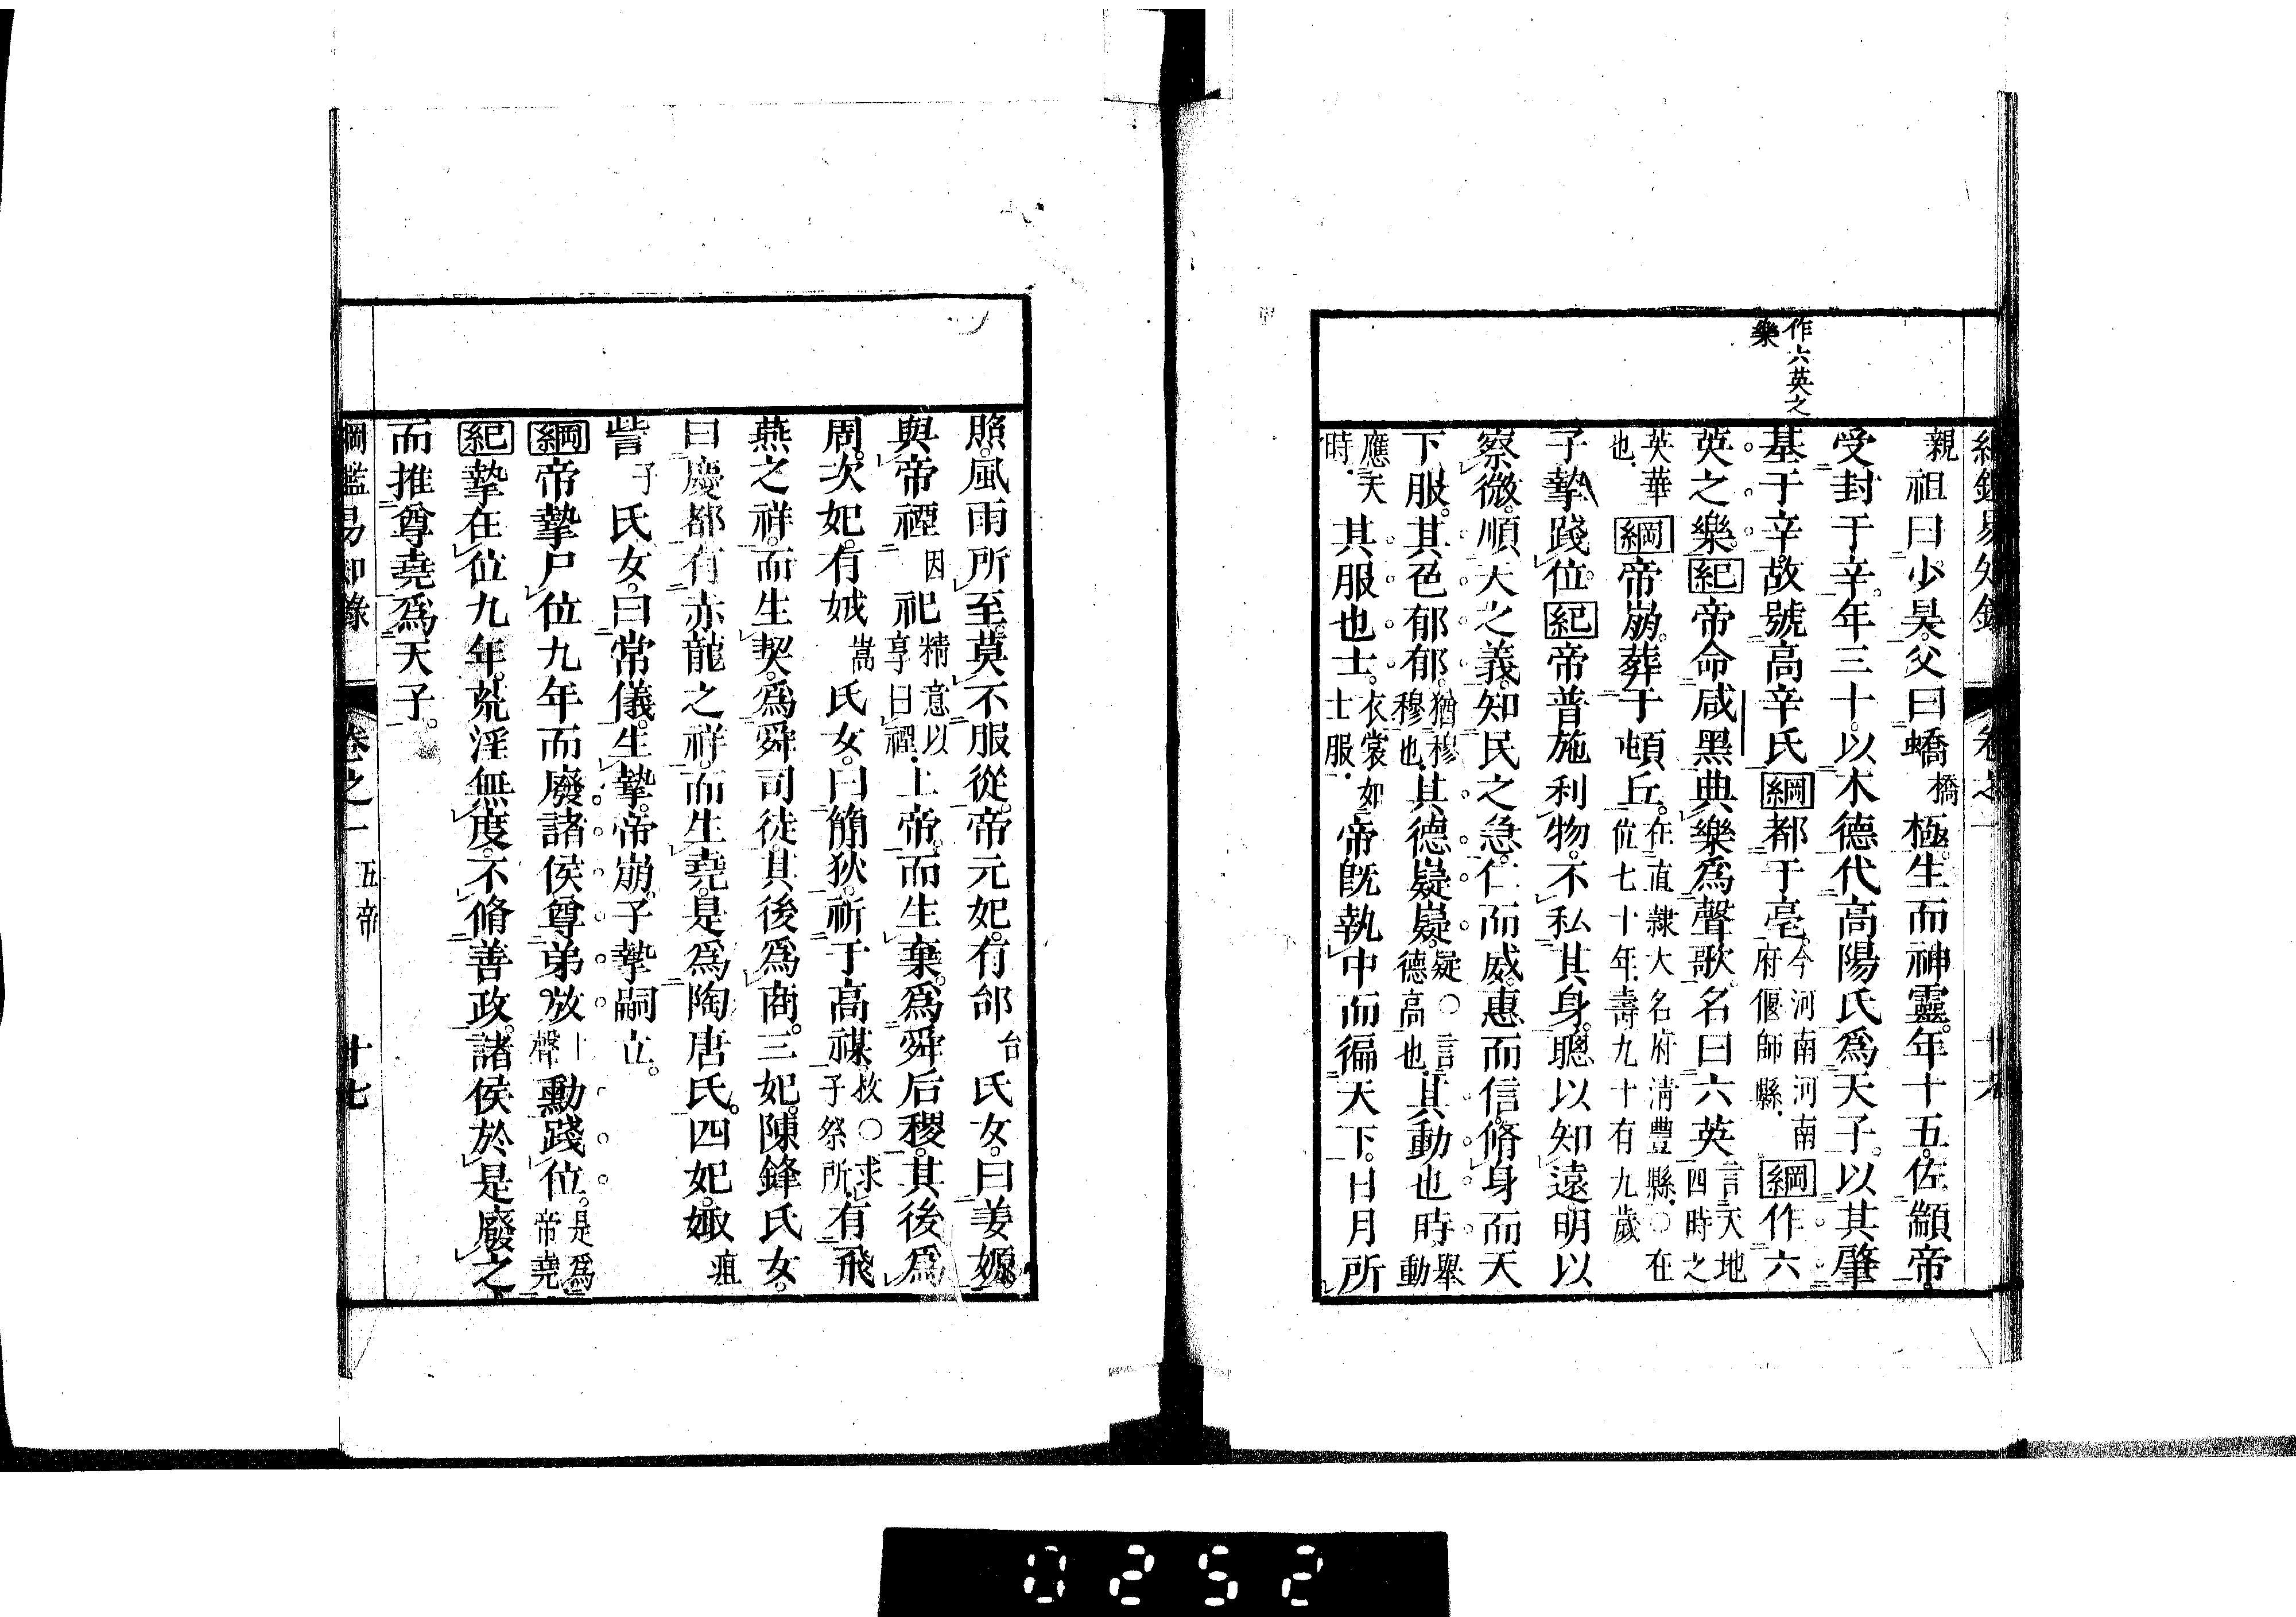 綱鑑易知錄 卷之一
作六英之
樂
親祖曰少昊。父曰蟜橋極。生而神靈。年十五。佐顓帝。
受封于辛。年三十。以木德代高陽氏爲天子。以其肇
基于辛。故號高辛氏。綱都于亳。今河南河南府偃師縣。綱作六
英之樂。紀帝命咸黑典樂爲聲歌。名曰六英。言天地四時之
英華也。綱帝崩。葬于頓丘。在直隸大名府淸豐縣。○在位七十年。壽九十有九歲
子摯踐位。紀帝普施利物。不私其身。聰以知遠。明以
察微。順天之義。知民之急。仁而威。惠而信。脩身而天
下服。其色郁郁。猶穆穆也。其德嶷嶷。疑○言德高也。其動也時。舉動
應天時。其服也士。衣裳如士服。帝旣執中而徧天下。日月所
照。風雨所至。莫不服從。帝元妃。有邰台氏女。曰姜嫄。
與帝禋因祀精意以享曰禋。上帝。而生棄。爲舜后稷。其後爲
周。次妃。有娀嵩氏女。曰簡狄。祈于高禖。枚○求子祭所。有飛
燕之祥。而生契。爲舜司徒。其後爲商。三妃。陳鋒氏女。
曰慶都。有赤龍之祥。而生堯。是爲陶唐氏。四妃。娵疽
訾子氏女。曰常儀。生摯。帝崩。子摯嗣立。
綱帝摯尸位九年而廢。諸侯尊弟放上聲勳踐位。是爲帝堯
紀摯在位九年。荒淫無度。不脩善政。諸侯於是廢之
而推尊堯爲天子。
綱鑑易知錄 卷之一 五帝 十七
0252